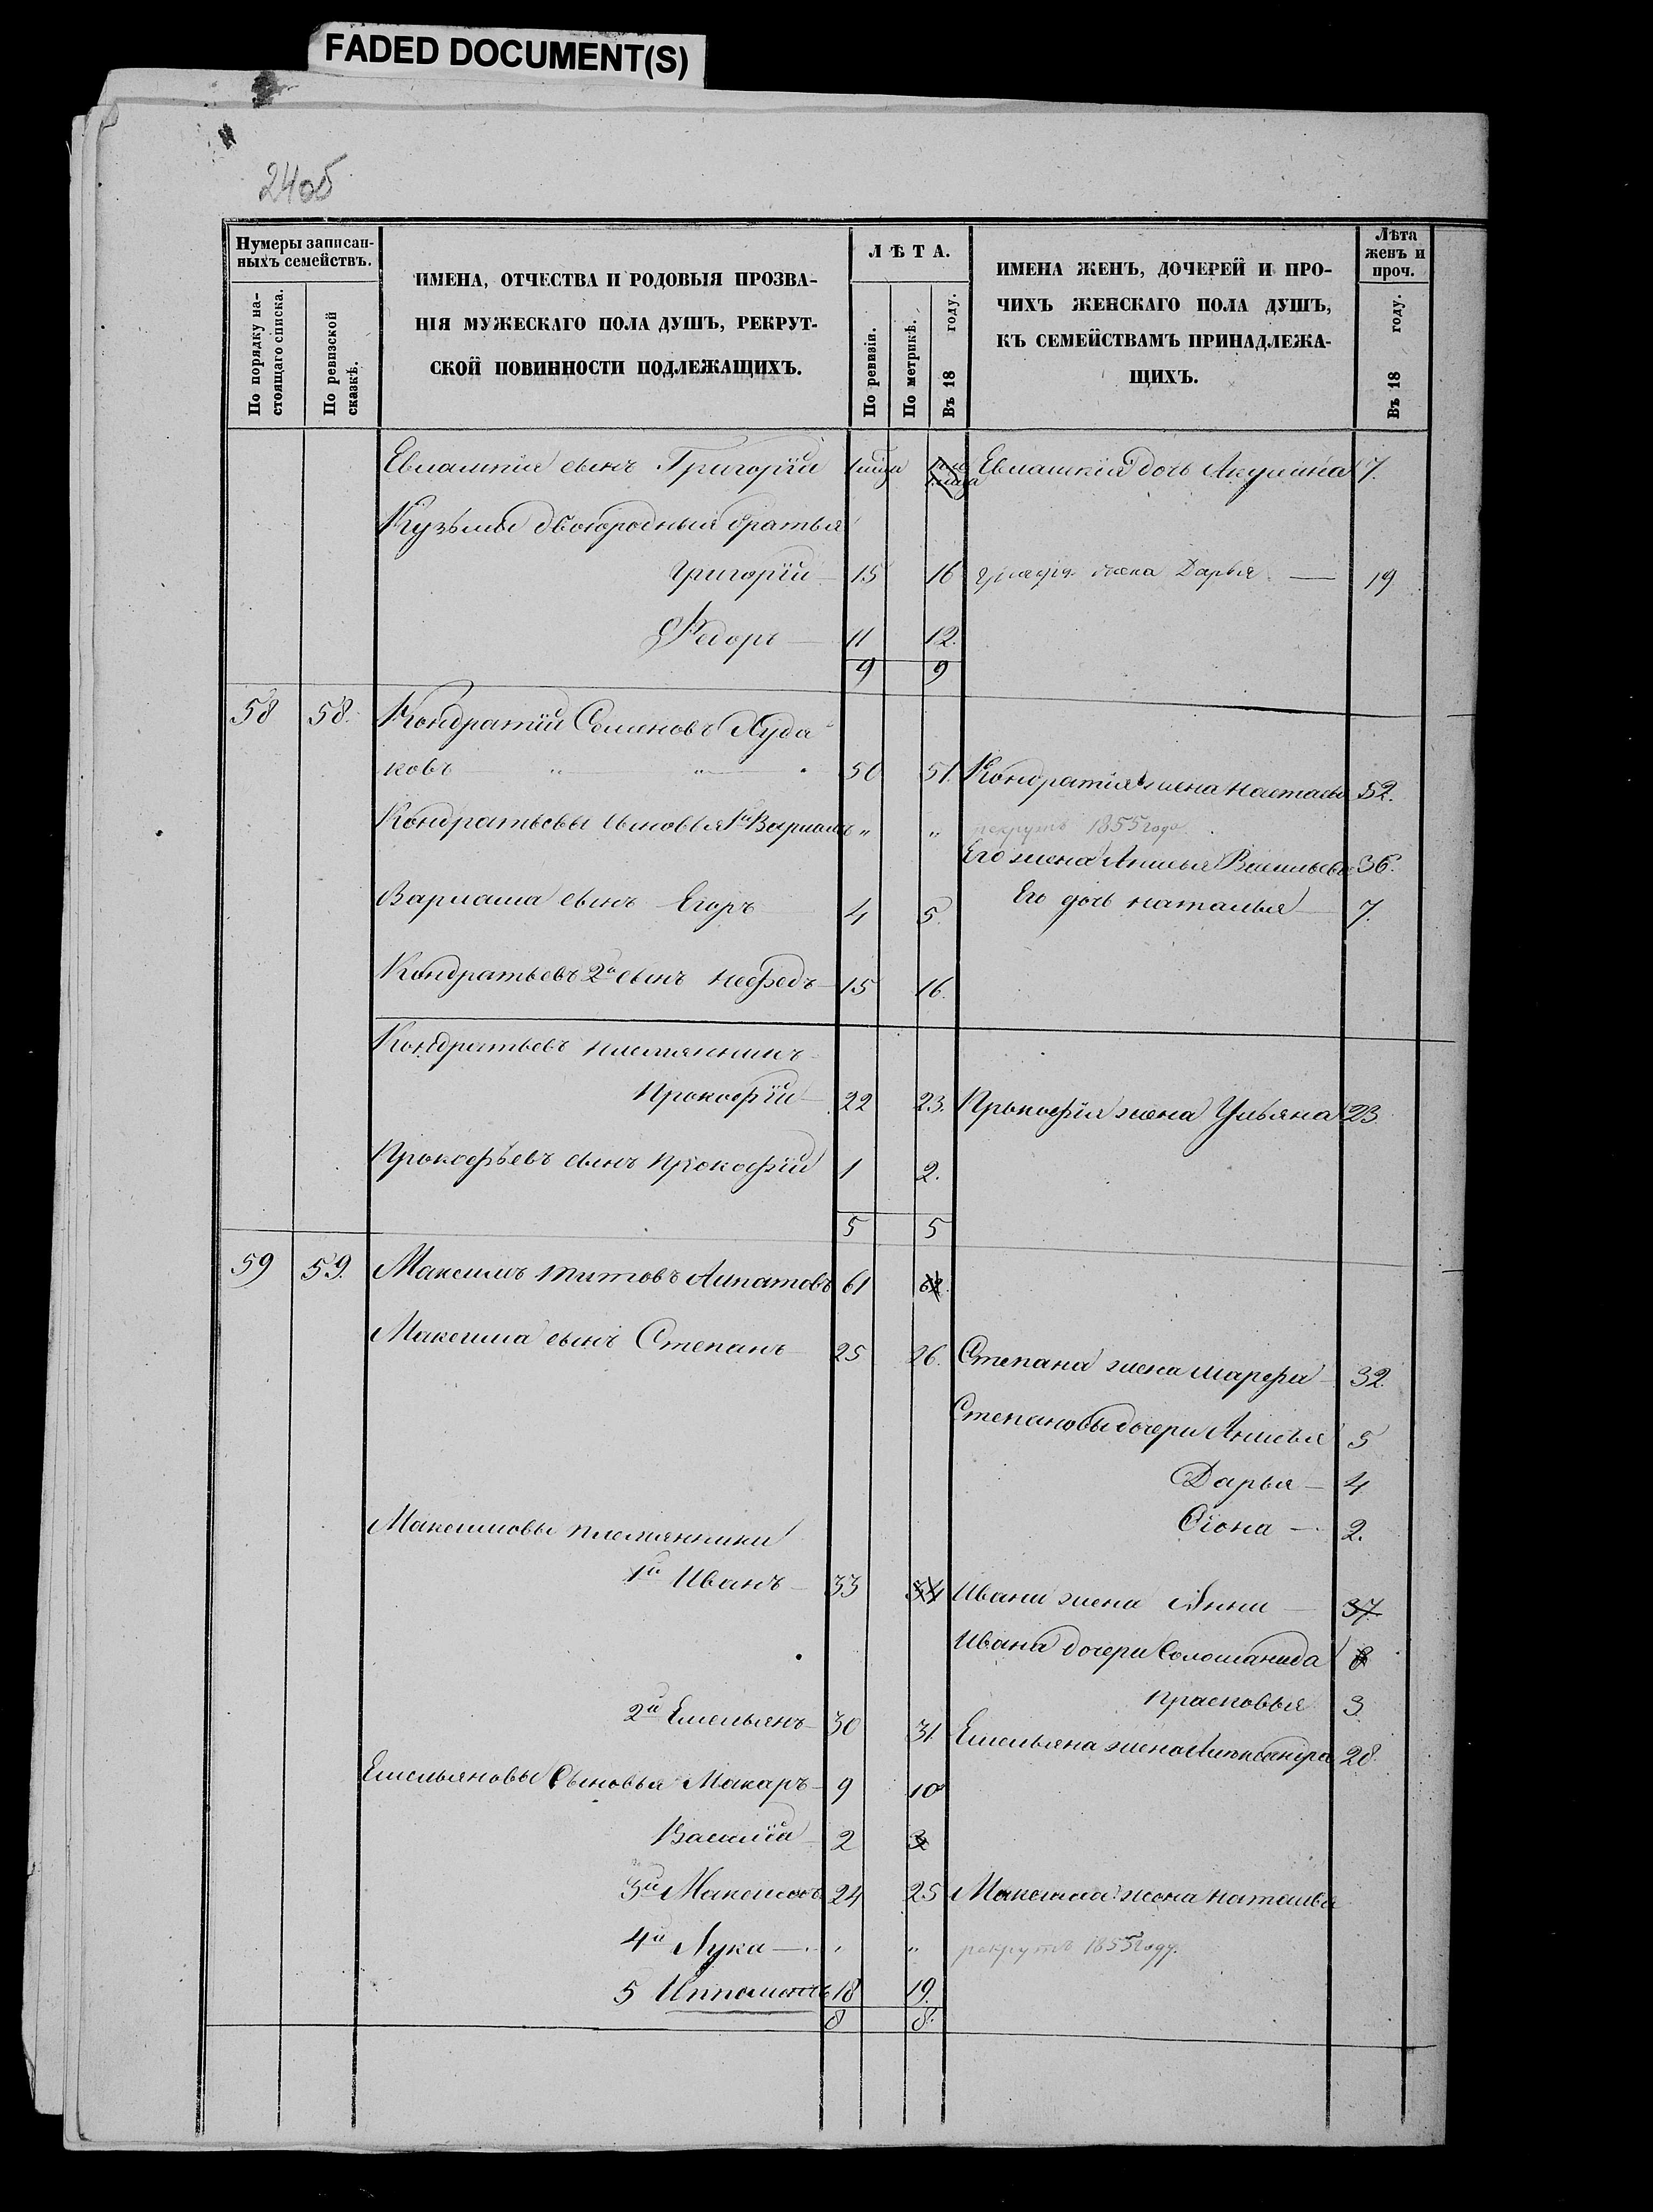 FADED DOCUMENT(S)
24об
Нумеры записан-
ныхъ семействъ.
По порядку на-
стоящаго списка.
По ревизской
сказкѣ.
ИМЕНА, ОТЧЕСТВА И РОДОВЫЯ ПРОЗВА-
НІЯ МУЖЕСКАГО ПОЛА ДУШЪ, РЕКРУТ-
СКОЙ ПОВИННОСТИ ПОДЛЕЖАЩИХЪ.
ЛѢТА.
По ревизіи.
По метрикѣ.
Въ 18 году.
ИМЕНА ЖЕНЪ, ДОЧЕРЕЙ И ПРО-
ЧИХЪ ЖЕНСКАГО ПОЛА ДУШЪ,
КЪ СЕМЕЙСТВАМЪ ПРИНАДЛЕЖА-
ЩИХЪ.
Лѣта
женъ и
проч.
Въ 18 году.
Евлампія сынъ Григорій Евлампія дочь Акулина 7.
Кузьмы двоюродныя братья
Григорій 15 16 жена Дарья — 19
Федоръ — 11 12.
9 9
58 58. Кондратій Семеновъ Худа
ковъ — " — " — 50 51. Кондратія жена Настасья 52.
Кондратьевы сыновья 1й Варламъ " " рекрутъ 1855 года
Его жена Анисья Васильева 36.
Варлама сынъ Егоръ 4 5. Его дочь Наталья 7.
Кондратьевъ 2й сынъ Нефедъ 15 16.
Кондратьевъ племянникъ
Прокофій 22 23. Прокофія жена Ульяна 23.
Прокофьевъ сынъ Прокофій 1 2.
5 5
59 59. Максимъ Титовъ Липатовъ 61 62.
Максима сынъ Степанъ 25 26. Степана жена Марфа 32.
Степановы дочери Анисья 5
Дарья — 4
Ѳіона — 2.
Максимовы племянники
1й Иванъ — 33 34 Ивана жена Анна — 37.
Ивана дочери Соломанида 8
Прасковья 3.
2й Емельянъ — 30 31. Емельяна жена Александра 28.
Емельяновы сыновья Макаръ — 9 10
Василій 2 3
3й Максимъ 24 25 Максима жена Наталья
4й Лука — " " рекрутъ 1855 году.
5 18 19.
8 8.